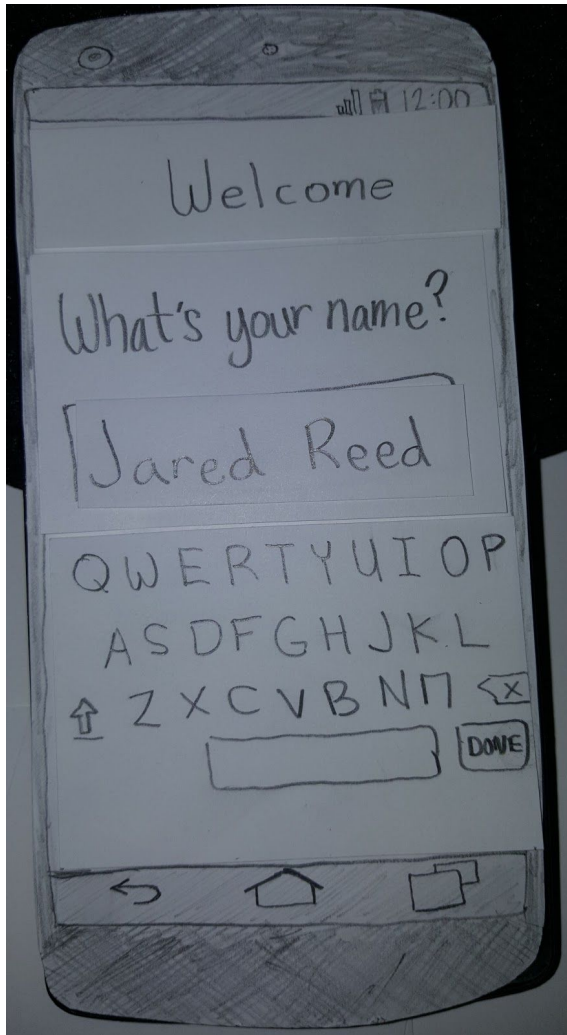 12:00
Welcome
What's your name?
Jared Reed
Q W E R T Y U I O P
A S D F G H J K L
Z X C V B N M X
DONE